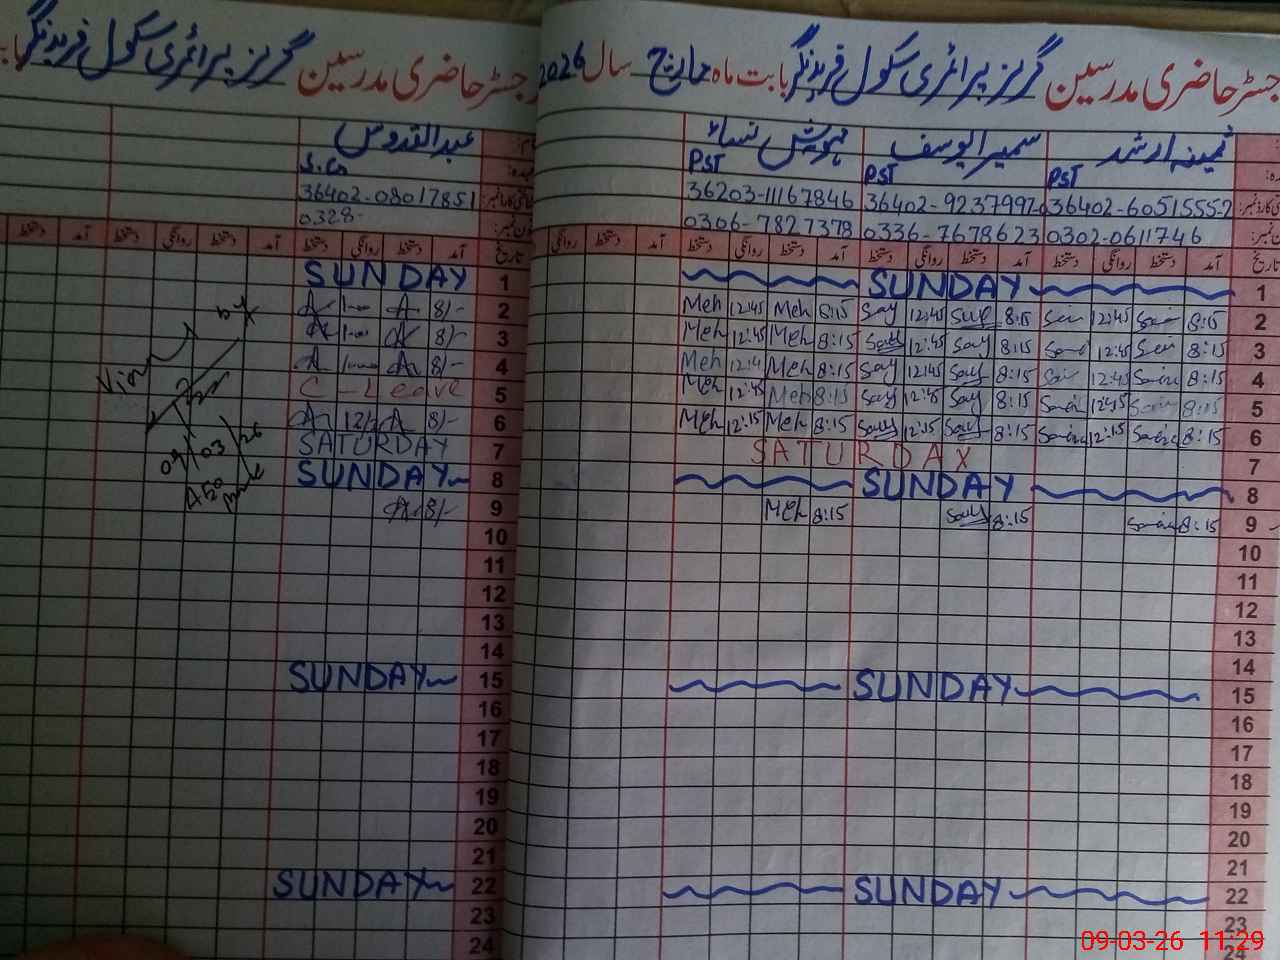 رجسٹر حاضری مدرسین گرلز پرائمری سکول فرید نگر بابت ماہ مارچ سال 2026
ثمینہ ارشد
سمیرا یوسف
PST
PST
PST
36402-6051555-2
36402-9237997-0
36203-11167846
0302-0611746
0336-7678623
0306-7827378
تاریخ آمد دستخط روانگی دستخط آمد دستخط روانگی دستخط آمد دستخط روانگی دستخط آمد دستخط روانگی
1 SUNDAY
2 8:15 12:45 8:15 Say 12:45 Say 8:15 Meh 12:45 Meh
3 8:15 12:45 8:15 Say 12:45 8:15 Meh 12:45 Meh
4 8:15 12:45 8:15 Say 12:45 Say 8:15 Meh Meh
5 8:15 12:45 8:15 Say 12:45 Say 8:15 Meh 12:45 Meh
6 8:15 12:15 8:15 Say 12:15 Say 8:15 Meh 12:15 Meh
7 SATURDAY
8 SUNDAY
9 8:15 8:15 Say 8:15 Meh
10
11
12
13
14
15 SUNDAY
16
17
18
19
20
21
22 SUNDAY
23
24
رجسٹر حاضری مدرسین گرلز پرائمری سکول فرید نگر
عبدالقدوس
36402-08017851
0328-
تاریخ آمد دستخط روانگی دستخط آمد دستخط روانگی دستخط آمد دستخط
1 SUNDAY
2 8/- A A
3 8/- A A
4 8/- A A
5 C-Leave
6 8/- A 12/- A
7 SATURDAY
8 SUNDAY
9 8/-
10
11
12
13
14
15 SUNDAY
16
17
18
19
20
21
22 SUNDAY
23
24
09/03/26
09-03-26 11:29